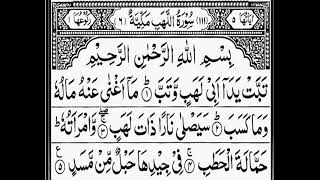 اٰیَاتُهَا ٥ (١١١) سُوْرَةُ اللَّهَبِ مَكِّيَّةٌ (٦) رُكُوْعُهَا ١
بِسْمِ اللّٰهِ الرَّحْمٰنِ الرَّحِیْمِ
تَبَّتْ یَدَاۤ اَبِیْ لَهَبٍ وَّتَبَّ ؕ ۝١ مَاۤ اَغْنٰی عَنْهُ مَالُهٗ
وَمَا كَسَبَ ؕ ۝٢ سَیَصْلٰی نَارًا ذَاتَ لَهَبٍ ۚۖ ۝٣ وَّامْرَاَتُهٗ ؕ
حَمَّالَةَ الْحَطَبِ ۚ ۝٤ فِیْ جِیْدِهَا حَبْلٌ مِّنْ مَّسَدٍ ۝٥ ع